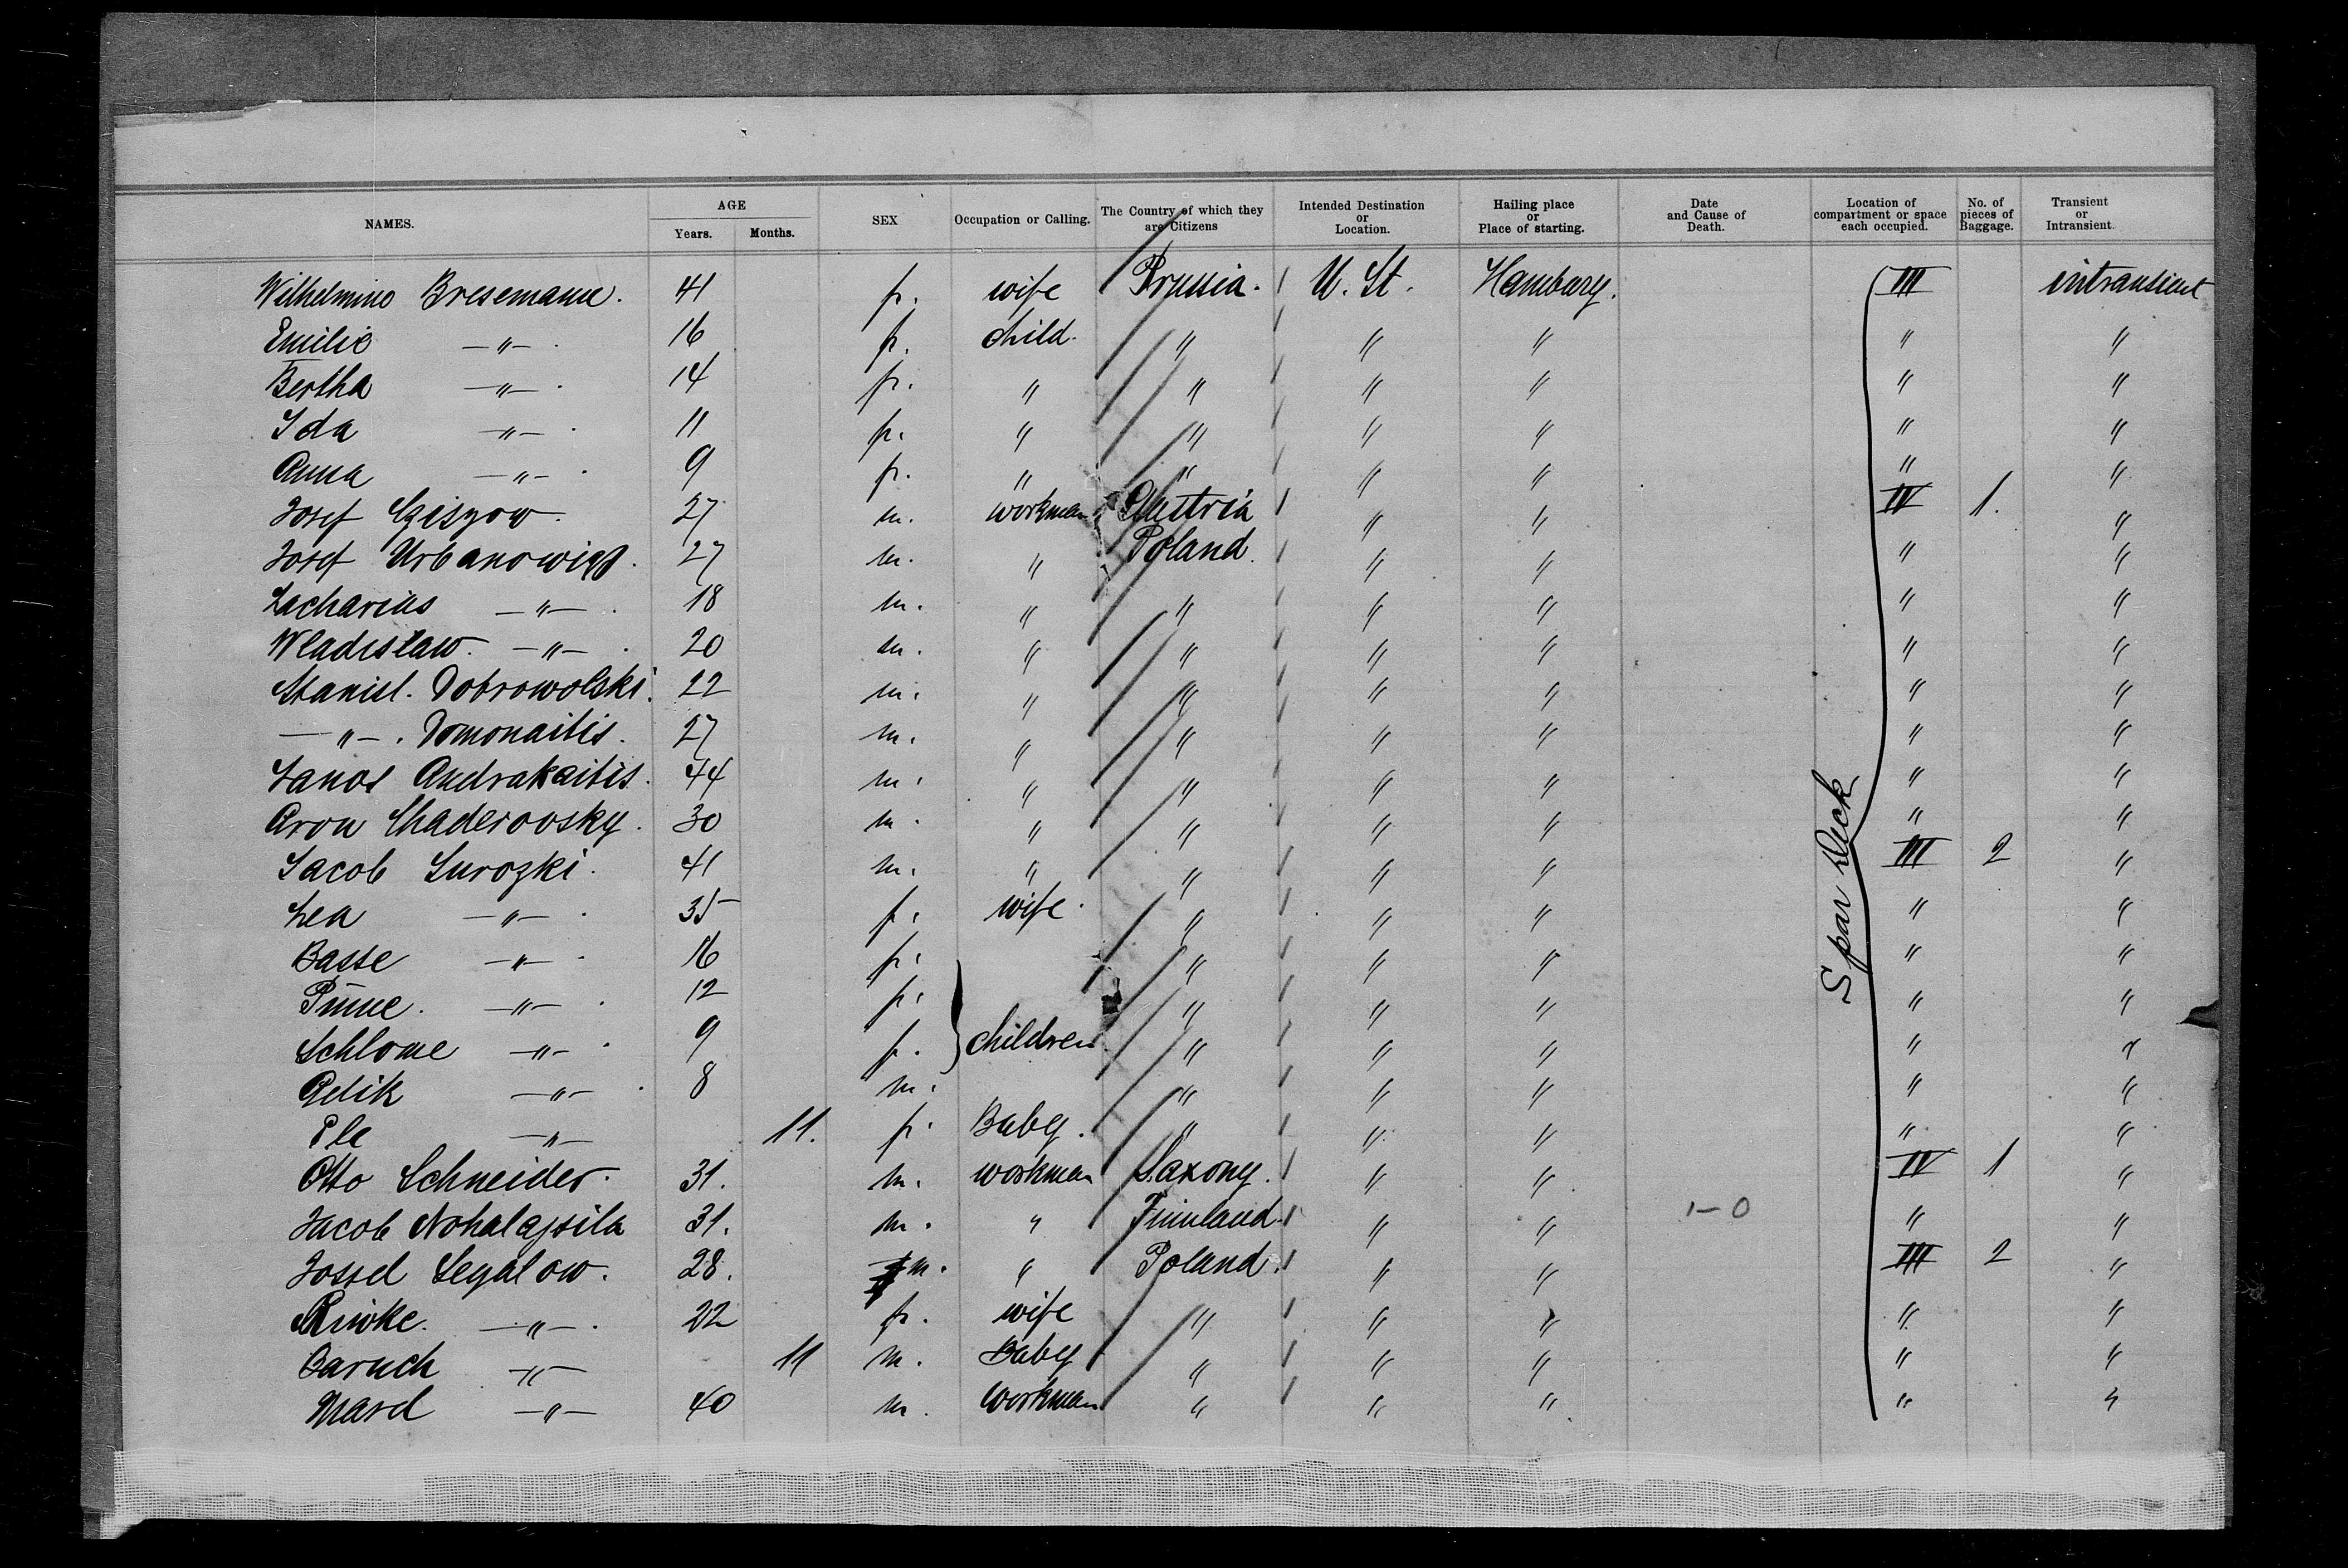 NAMES. AGE Years. Months. SEX Occupation or Calling. The Country of which they are Citizens Intended Destination or Location. Hailing place or Place of starting. Date and Cause of Death. Location of compartment or space each occupied. No. of pieces of Baggage. Transient or Intransient.
Wilhelmine Bresemann. 41 f. wife Prussia. U. St. Hamburg. III intransient
Emilie —〃— 16 f. child. 〃 〃 〃 〃 〃
Bertha —〃— 14 f. 〃 〃 〃 〃 〃 〃
Ida —〃— 11 f. 〃 〃 〃 〃 〃 〃
Anna —〃— 9 f. 〃 〃 〃 〃 〃 〃
Josef 27 m. workman Austria 〃 〃 IV 1. 〃
Josef Urbanowicz. 27 m. 〃 Poland. 〃 〃 〃 〃
Zacharias —〃— 18 m. 〃 〃 〃 〃 〃 〃
Wladislaw. —〃— 20 m. 〃 〃 〃 〃 〃 〃
Stanisl. Dobrowolski. 22 m. 〃 〃 〃 〃 〃 〃
—〃—. Domonaitis. 27 m. 〃 〃 〃 〃 〃 〃
Janos Andrakaitis. 44 m. 〃 〃 〃 〃 〃 〃
Aron 30 m. 〃 〃 〃 〃 〃 〃
Jacob Surozki. 41 m. 〃 〃 〃 〃 III 2 〃
Lea —〃— 35 f. wife. 〃 〃 〃 〃 〃
Basse —〃— 16 f. 〃 〃 〃 〃 〃
—〃— 12 f. 〃 〃 〃 〃 〃
Schlome —〃— 9 f. children 〃 〃 〃 〃 〃
—〃— 8 m. 〃 〃 〃 〃 〃
—〃— 11. f. Baby. 〃 〃 〃 〃 〃
Otto Schneider. 31. m. workman Saxony. 〃 〃 IV 1 〃
Jacob 31. m. 〃 Finnland. 〃 〃 1-0 〃 〃
Jossel Segalow. 28. m. 〃 Poland. 〃 〃 III 2 〃
Riwke. —〃— 22 f. wife 〃 〃 〃 〃 〃
Baruch —〃— 11 m. Baby 〃 〃 〃 〃 〃
—〃— 40 m. workman 〃 〃 〃 〃 〃
Spar Deck